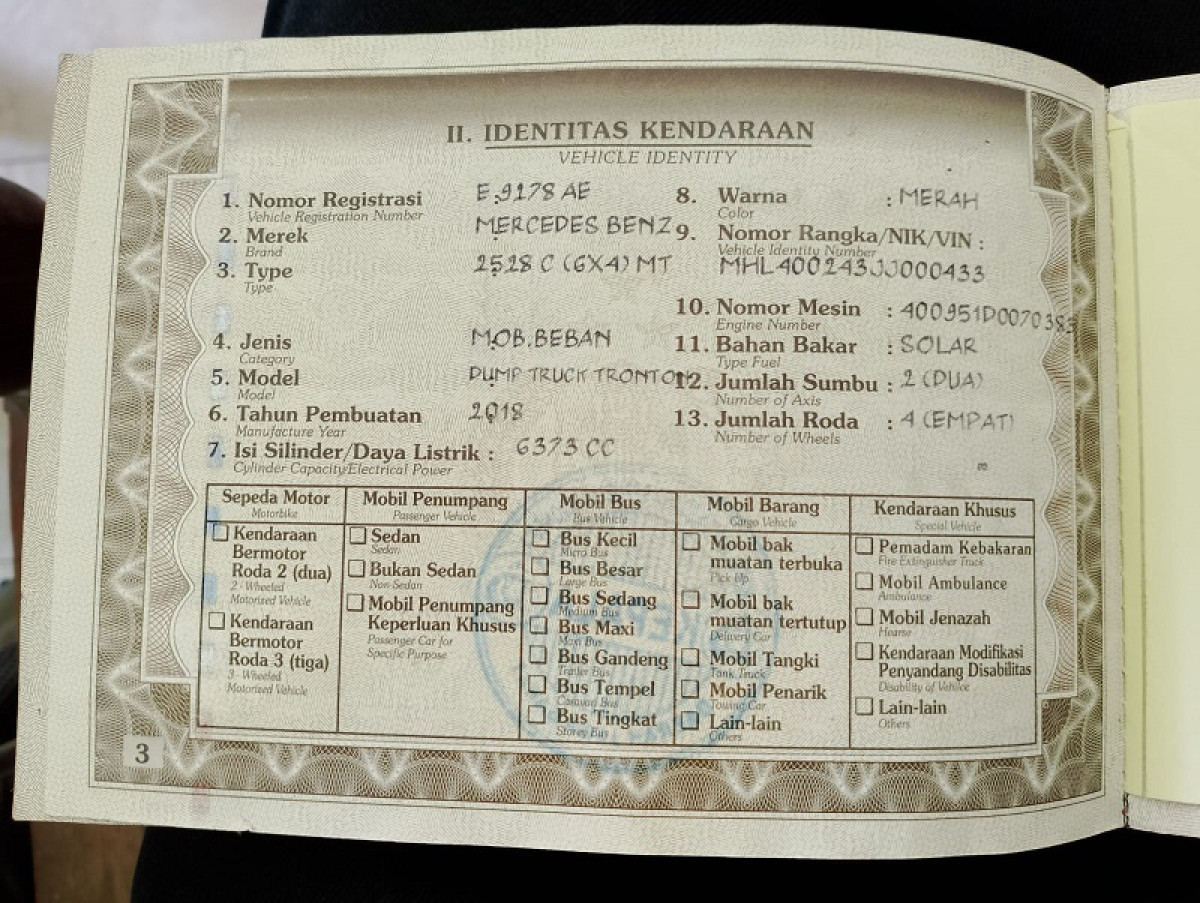 II. IDENTITAS KENDARAAN
VEHICLE IDENTITY
1. Nomor Registrasi E 9178 AE
Vehicle Registration Number
2. Merek MERCEDES BENZ
Brand
3. Type 2528 C (6X4) MT
Type
4. Jenis MOB.BEBAN
Category
5. Model DUMP TRUCK TRONTON
Model
6. Tahun Pembuatan 2018
Manufacture Year
7. Isi Silinder/Daya Listrik : 6373 CC
Cylinder Capacity/Electrical Power
8. Warna : MERAH
Color
9. Nomor Rangka/NIK/VIN :
Vehicle Identity Number
MHL400243JJ000433
10. Nomor Mesin : 400951D0070383
Engine Number
11. Bahan Bakar : SOLAR
Type Fuel
12. Jumlah Sumbu : 2 (DUA)
Number of Axis
13. Jumlah Roda : 4 (EMPAT)
Number of Wheels
Sepeda Motor
Motorbike
Kendaraan
Bermotor
Roda 2 (dua)
2 - Wheeled
Motorised Vehicle
Kendaraan
Bermotor
Roda 3 (tiga)
3 - Wheeled
Motorised Vehicle
Mobil Penumpang
Passenger Vehicle
Sedan
Sedan
Bukan Sedan
Non Sedan
Mobil Penumpang
Keperluan Khusus
Passenger Car for
Specific Purpose
Mobil Bus
Bus Vehicle
Bus Kecil
Micro Bus
Bus Besar
Large Bus
Bus Sedang
Medium Bus
Bus Maxi
Maxi Bus
Bus Gandeng
Trailer Bus
Bus Tempel
Caravan Bus
Bus Tingkat
Storey Bus
Mobil Barang
Cargo Vehicle
Mobil bak
muatan terbuka
Pick Up
Mobil bak
muatan tertutup
Delivery Car
Mobil Tangki
Tank Truck
Mobil Penarik
Towing Car
Lain-lain
Others
Kendaraan Khusus
Special Vehicle
Pemadam Kebakaran
Fire Extinguisher Truck
Mobil Ambulance
Ambulance
Mobil Jenazah
Hearse
Kendaraan Modifikasi
Penyandang Disabilitas
Disability of Vehilce
Lain-lain
Others
3